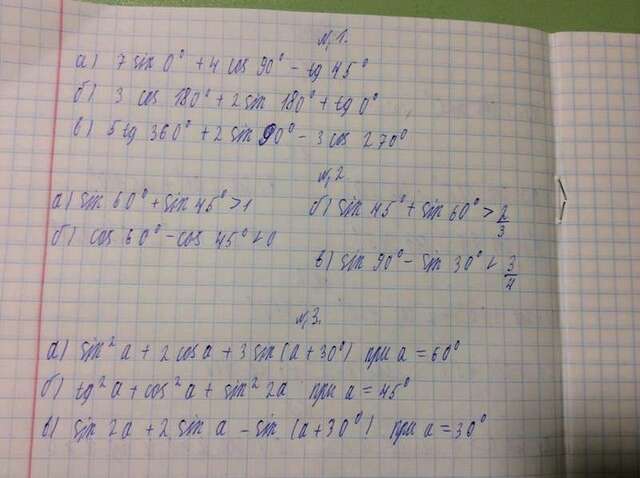 №1.
а) 7 sin 0° + 4 cos 90° - tg 45°
б) 3 cos 180° + 2 sin 180° + tg 0°
в) 5 tg 360° + 2 sin 90° - 3 cos 270°
№2
а) sin 60° + sin 45° > 1
б) cos 60° - cos 45° < 0
б) sin 45° + sin 60° > 2/3
в) sin 90° - sin 30° < 3/4
№3.
а) sin² a + 2 cos a + 3 sin (a + 30°) при a = 60°
б) tg² a + cos² a + sin² 2a при a = 45°
в) sin 2a + 2 sin a - sin (a + 30°) при a = 30°